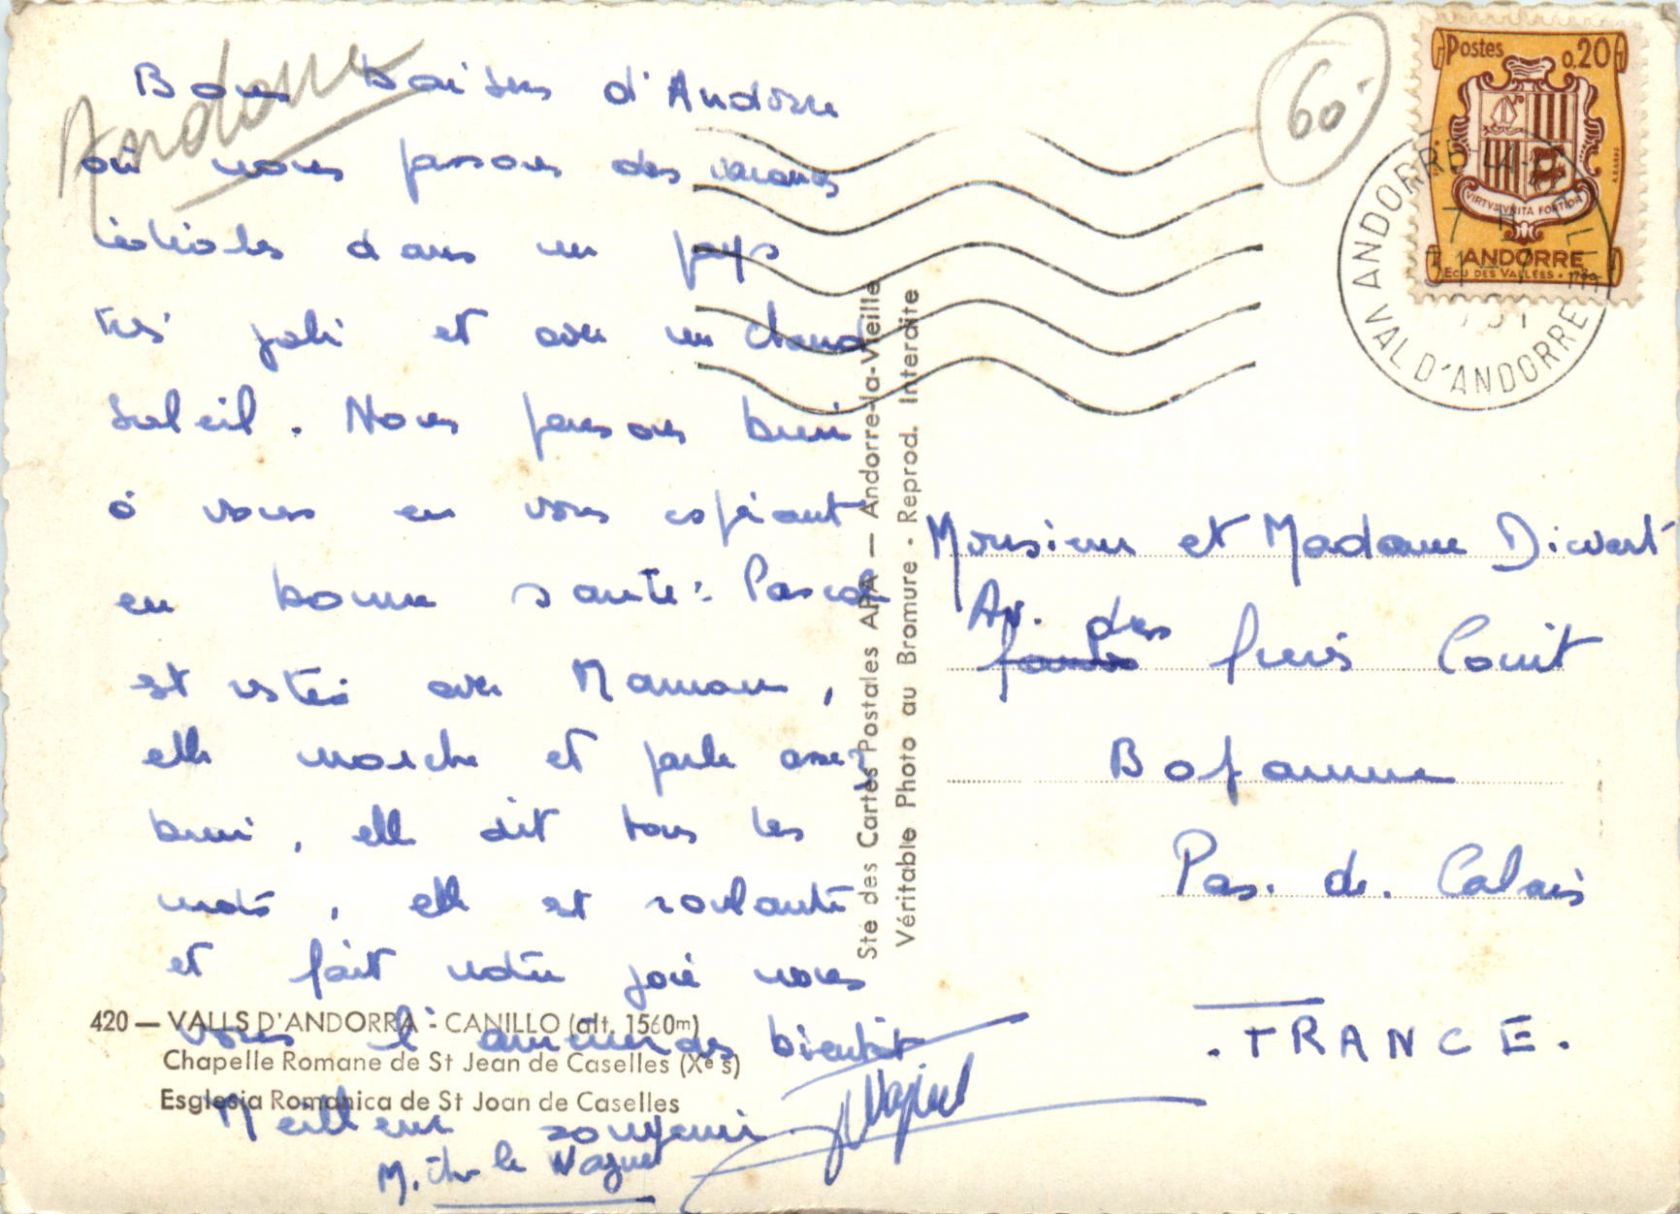 Andorre
Bons baisers d'Andorre
où nous passons des vacances
idéales dans un pays
très joli et avec un chaud
soleil. Nous pensons bien
à vous en vous espérant
en bonne santé. Pascale
est restée avec Maman,
elle marche et parle assez
bien, elle dit tous les
mots, elle est roulante
et fait notre joie nous
vous l'amènerons bientôt
Meilleur souvenir.
Michele Waguet
60.-
Postes 0,20
VIRTVS VNITA FORTIOR
ANDORRE
ECU DES VALLÉES
ANDORRE-LA-VIEILLE
VAL D'ANDORRE
Sté des Cartes Postales APA — Andorre-la-Vieille
Véritable Photo au Bromure - Reprod. Interdite
Monsieur et Madame
Av. des
frères
Pas. de. Calais
.FRANCE.
420 — VALLS D'ANDORRA - CANILLO (alt. 1560m)
Chapelle Romane de St Jean de Caselles (Xe s)
Esglesia Romanica de St Joan de Caselles